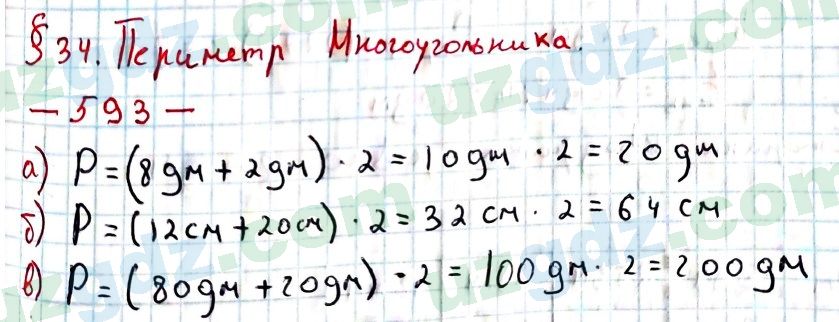 § 34. Периметр Многоугольника.
— 593 —
а) P = (8 дм + 2 дм) · 2 = 10 дм · 2 = 20 дм
б) P = (12 см + 20 см) · 2 = 32 см · 2 = 64 см
в) P = (80 дм + 20 дм) · 2 = 100 дм · 2 = 200 дм
uzgdz.com